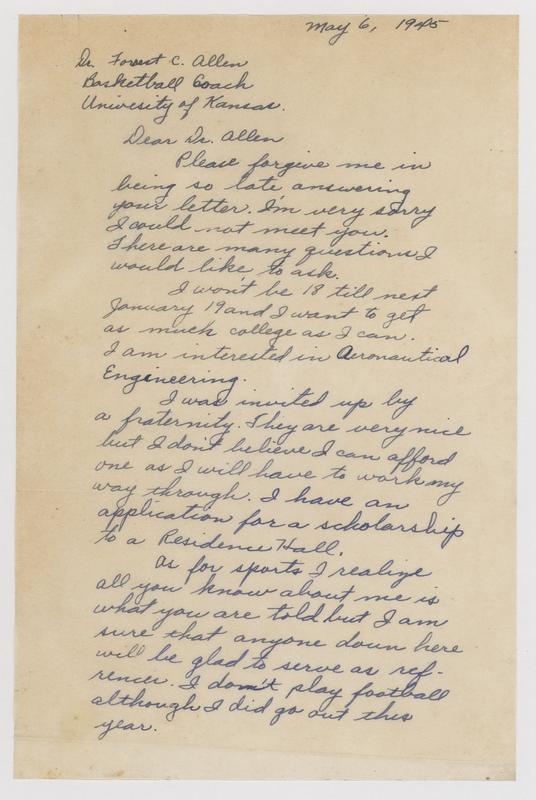 May 6, 1945
Dr. Forrest C. Allen
Basketball Coach
Univesity of Kansas.
Dear Dr. Allen
Please forgive me in
being so late answering
your letter. I'm very sorry
I could not meet you.
There are many questions I
would like to ask.
I won't be 18 till next
January 19 and I want to get
as much college as I can.
I am interested in Aeronautical
Engineering.
I was invited up by
a fraternity. They are very nice
but I don't believe I can afford
one as I will have to work my
way through. I have an
application for a scholarship
to a Residence Hall.
As for sports I realize
all you know about me is
what you are told but I am
sure that anyone down here
will be glad to serve as ref-
rences. I don't play football
although I did go out this
year.